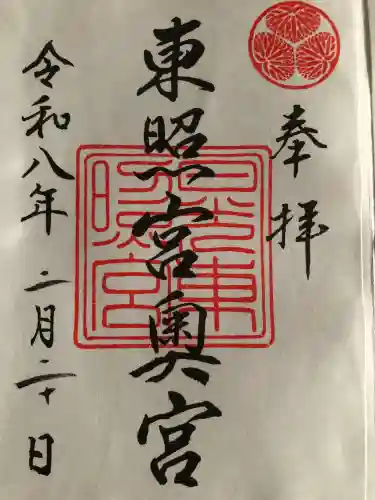 奉拝
東照宮奥宮
日光東照宮
令和八年二月二十日